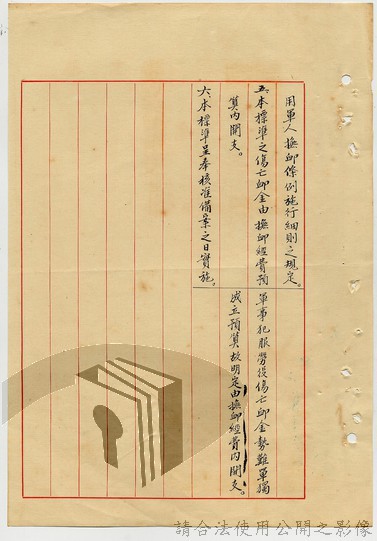 用軍人撫卹條例施行細則之規定。
五、本標準之傷亡卹金由撫卹經費預
算內開支。
六、本標準呈奉核准備案之日實施。
軍事犯服勞役傷亡卹金勢難單獨
成立預算故明定由撫卹經費內開支。
請合法使用公開之影像